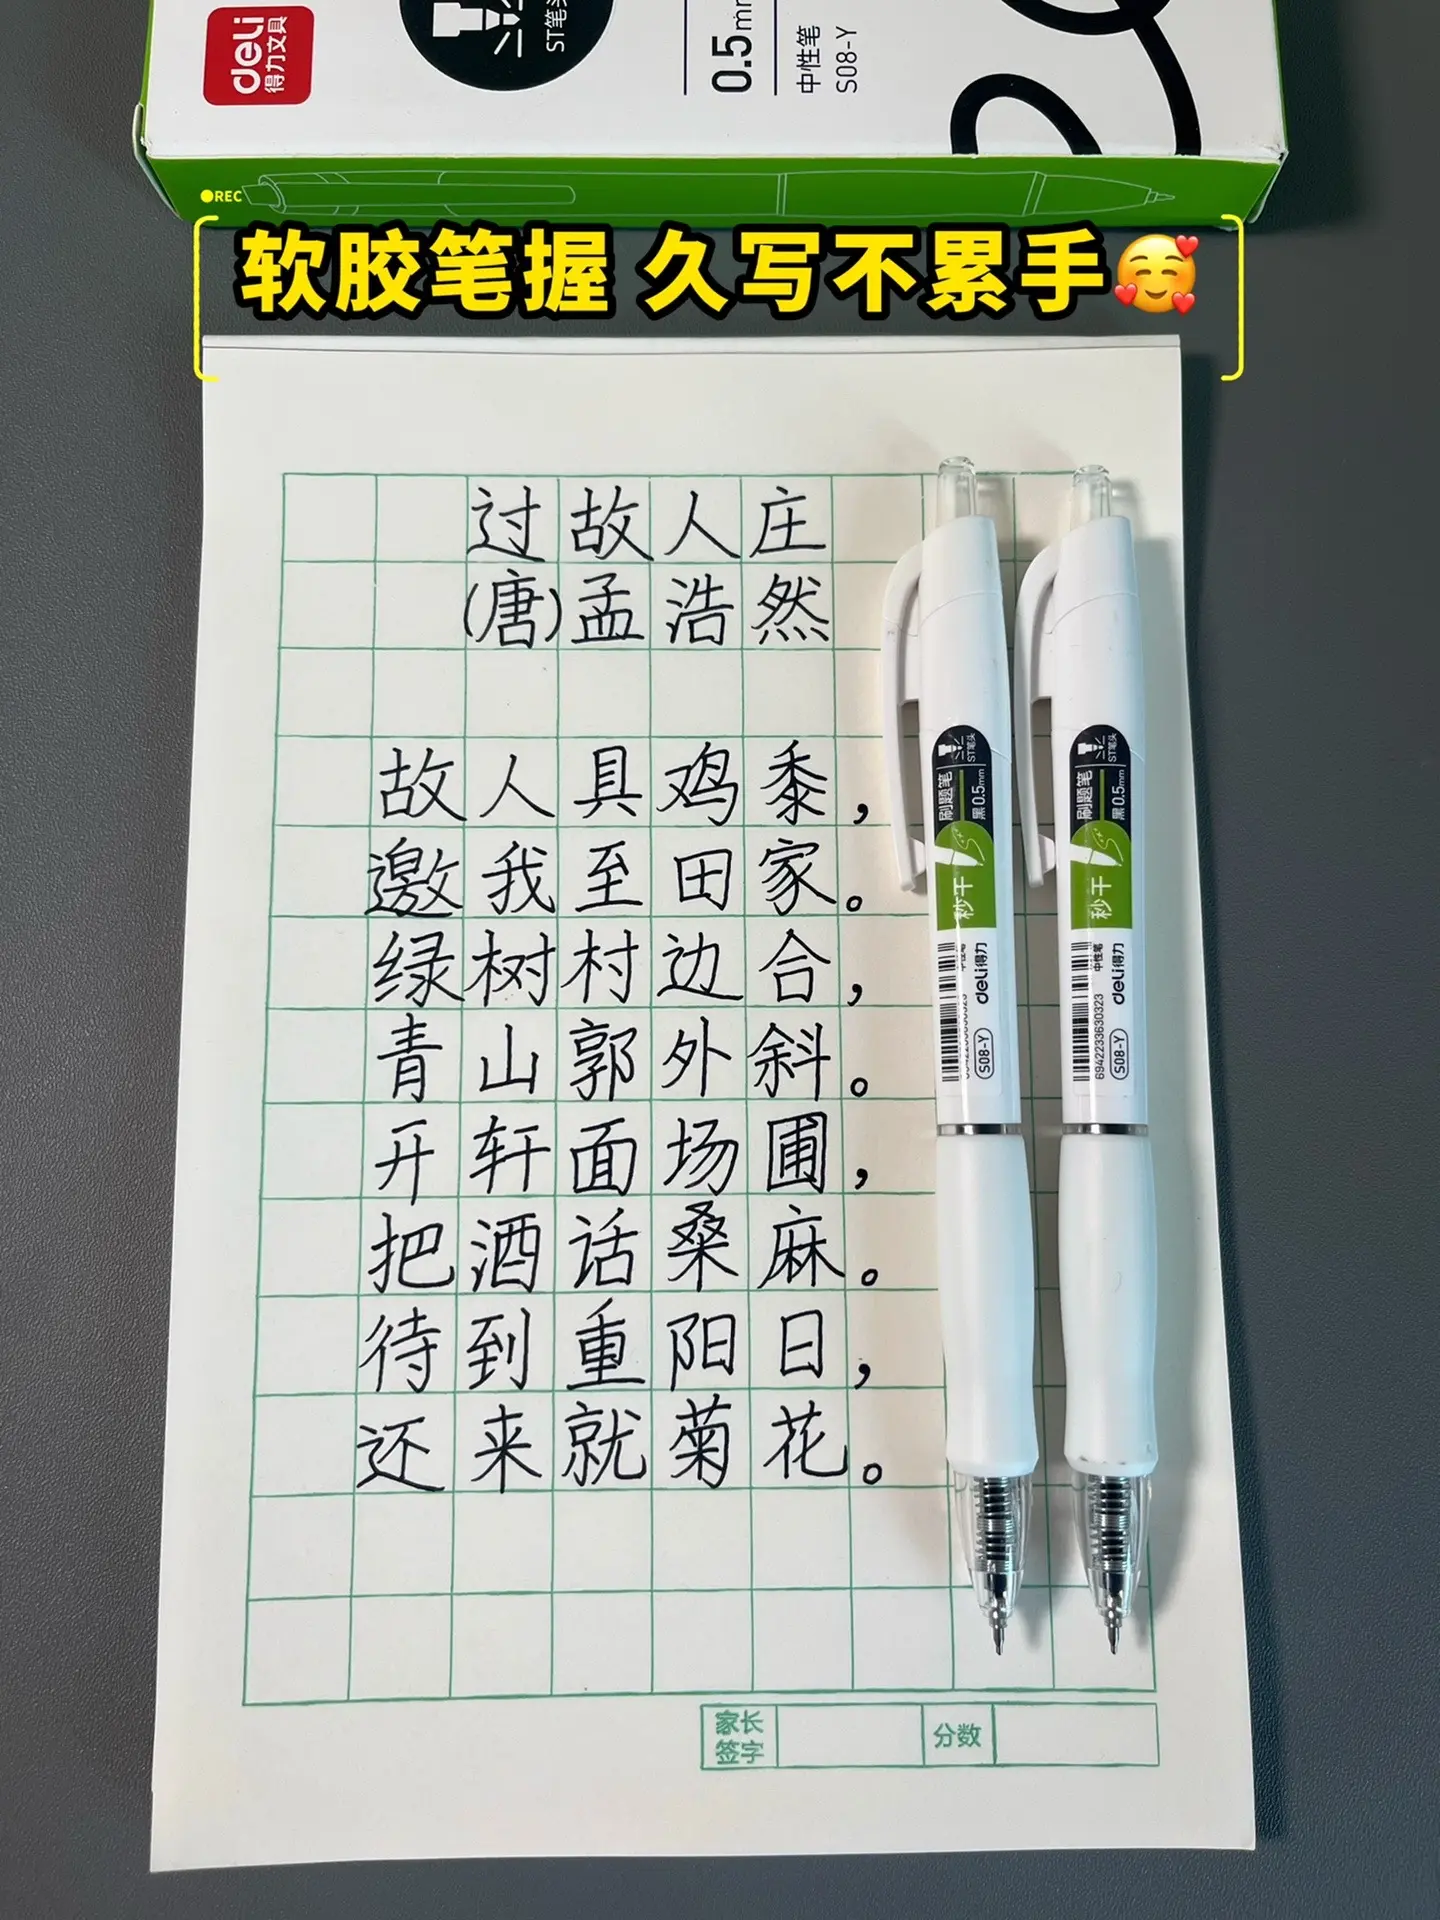 deli
得力文具
ST笔头
0.5mm
中性笔
S08-Y
REC
软胶笔握 久写不累手
过故人庄
(唐)孟浩然
故人具鸡黍，
邀我至田家。
绿树村边合，
青山郭外斜。
开轩面场圃，
把酒话桑麻。
待到重阳日，
还来就菊花。
家长签字
分数
刷题笔
ST笔头
黑0.5mm
秒干
中性笔
deli得力
S08-Y
刷题笔
ST笔头
黑0.5mm
秒干
中性笔
deli得力
6942233630323
S08-Y